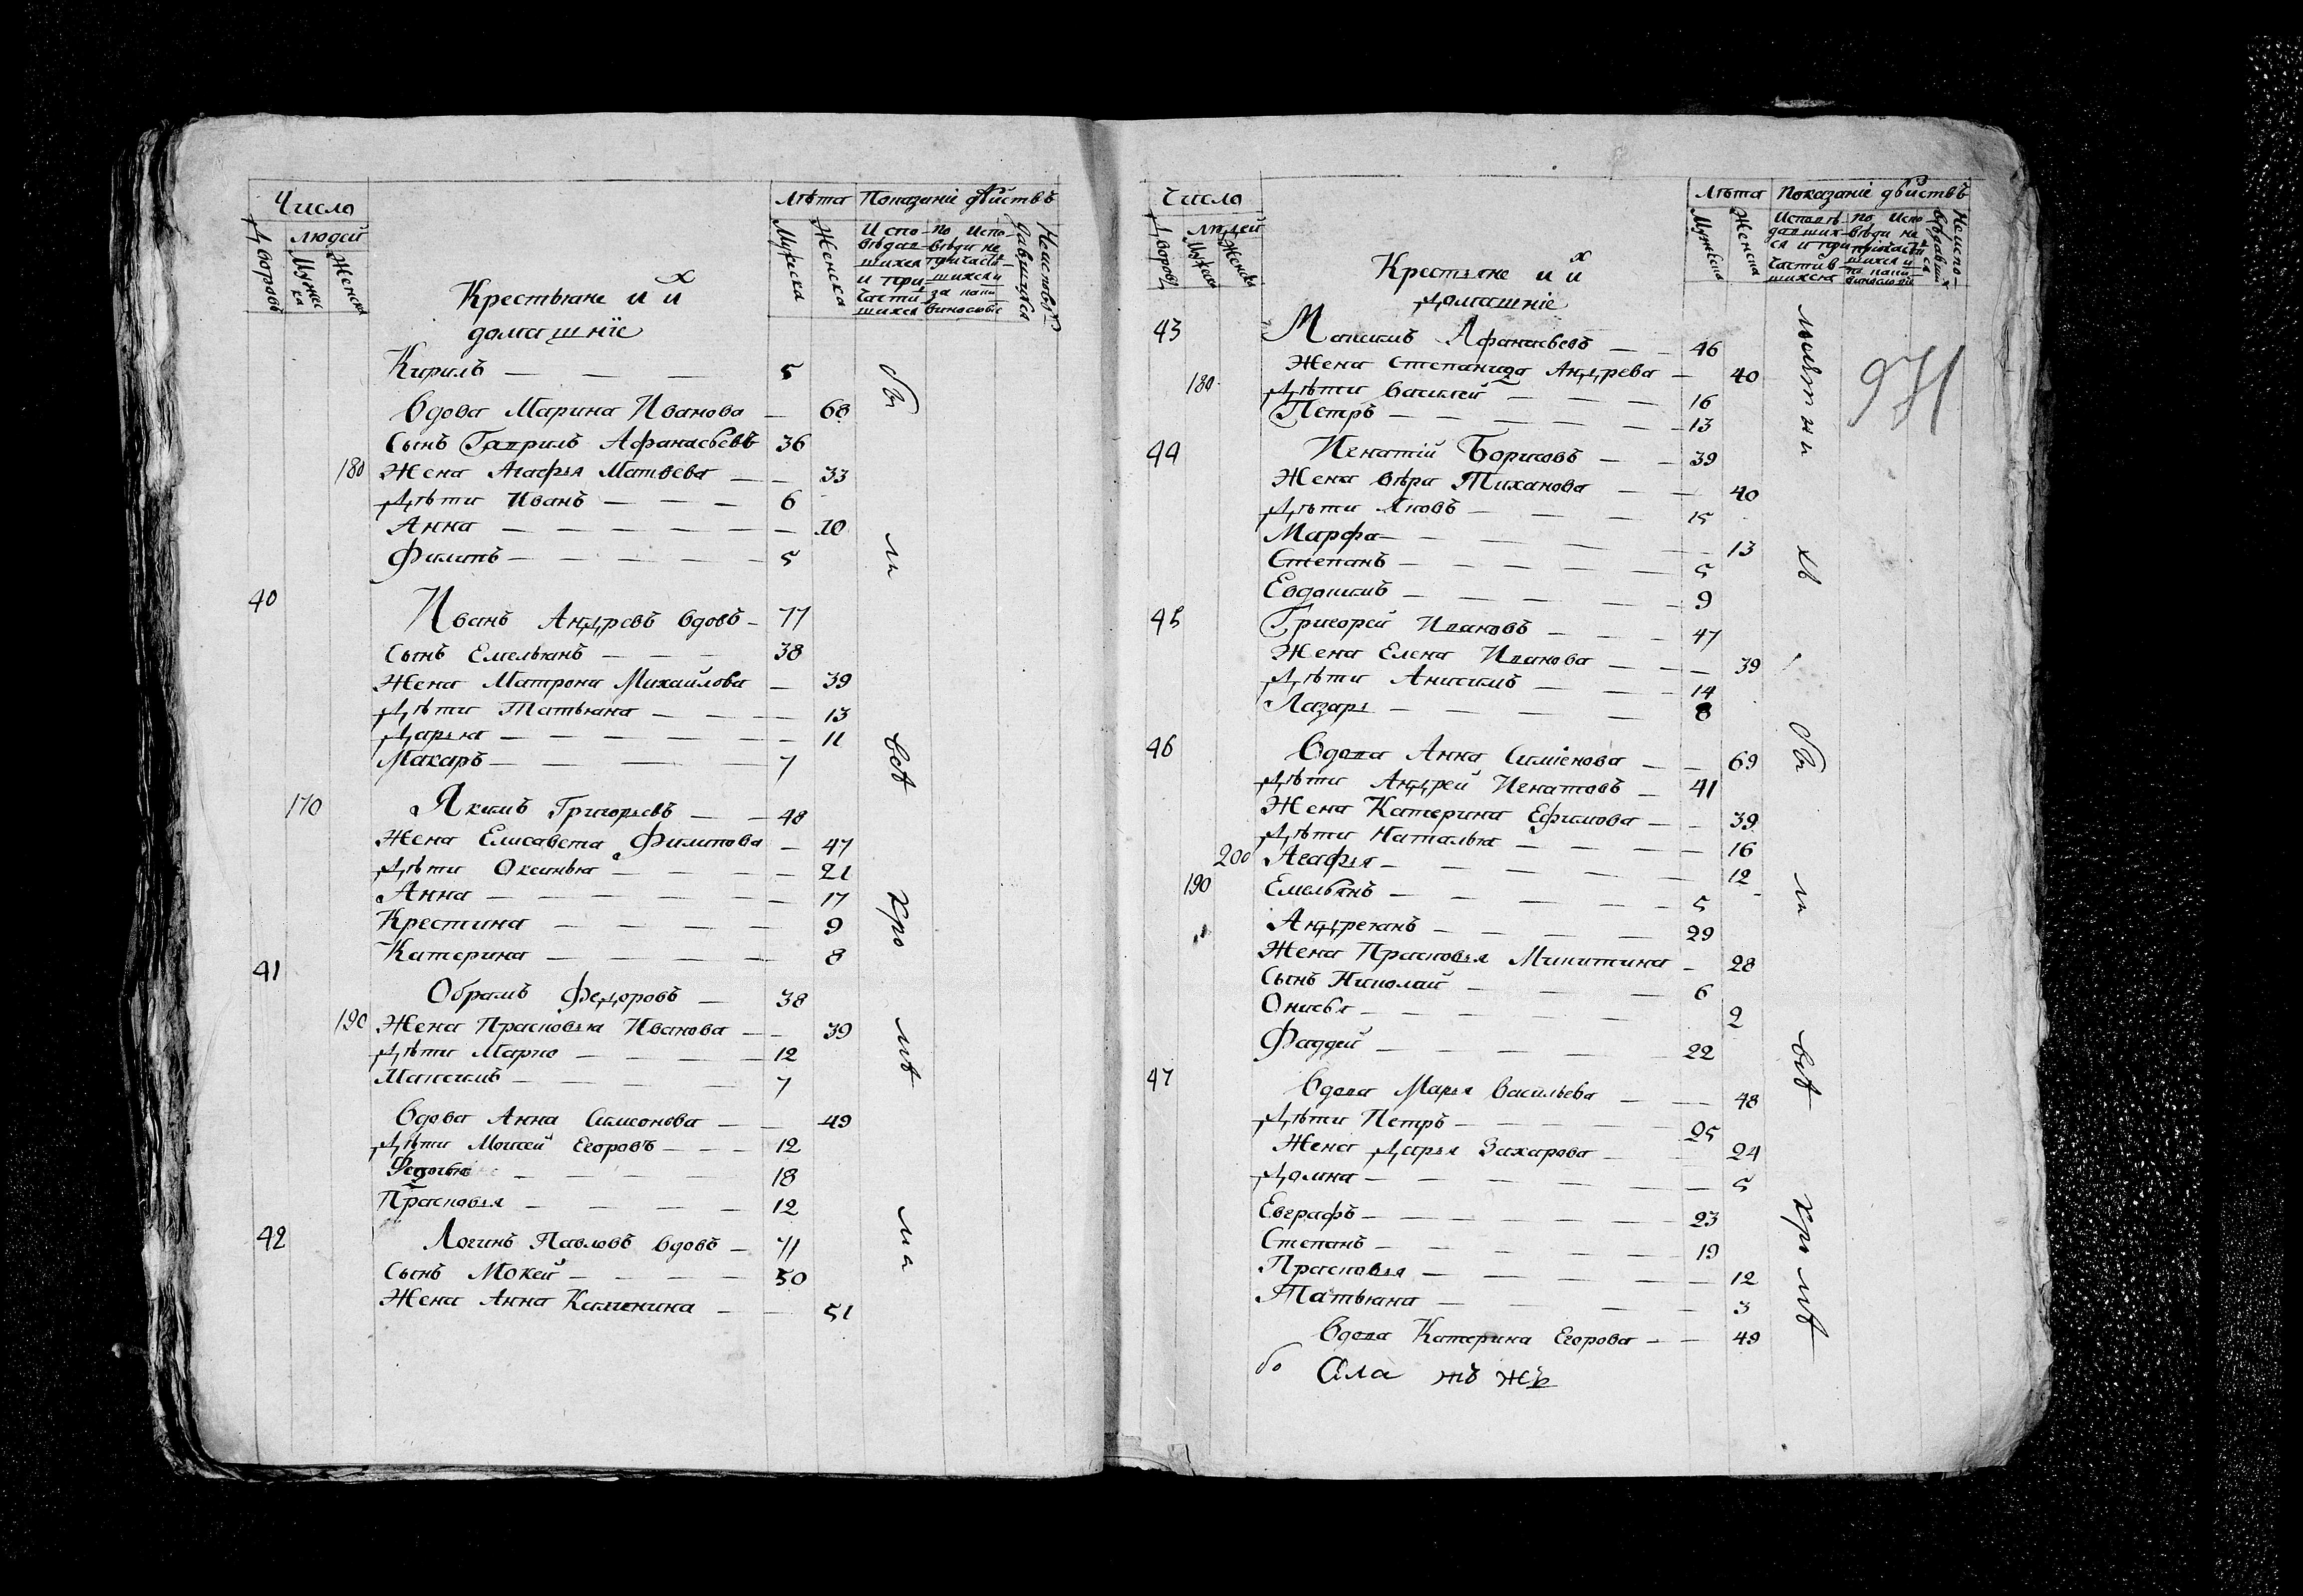 Числа
Лѣта Показаніе дѣйствъ
Дворовъ
людей
Мужеска
Женска
Испо- По испо-
вѣдав- вѣди не
шихся причасти-
и при- шихся и
части- за каки-
шихся
Крестьяне и ихъ
домашніе
Кирилъ — — — 5
Вдова Марина Иванова — 68
Сынъ Гавриль Афанасьевъ 36
180 Жена Агафья Матвѣева — — 33
Дѣти Иванъ — — — 6
Анна — — — — — 10
Филипъ — — — — — 5
40
Иванъ Андревъ вдовъ — 77
Сынъ Емельянъ — — — 38
Жена Матрона Михайлова — 39
Дѣти Татьяна — — — — 13
Дарья — — — — — 11
Макаръ — — — — 7
170 Якимъ Григорьевъ — — 48
Жена Елисавета Филипова — 47
Дѣти Оксинья — — — — 21
Анна — — — — — — 17
Крестина — — — — 9
Катерина — — — — 8
41
Обрамъ Федоровъ — 38
190 Жена Прасковья Иванова — — 39
Дѣти Марко — — — — 12
Максимъ — — — — 7
Вдова Анна Симеонова — — 49
Дѣти Моисей Егоровъ — — — 12
— — — — 18
Прасковья — — — — 12
42 Логинъ Павловъ вдовъ — 71
Сынъ Мокей — — — — 50
Жена Анна Калинина — — 51
бы
ли
всѣ
кро
мѣ
ма
Числа
Лѣта Показаніе дѣйствъ
Дворовъ
людей
Мужеска
Женска
Крестьяне и ихъ
Домашніе
43 Максимъ Афанасьевъ — — 46
Жена Степанида Андрева — 40
180 Дѣти Василей — — — 16
Петръ — — — — — 13
44 Игнатій Борисовъ — — 39
Жена Вѣра Тиханова — — 40
Дѣти Яковъ — — — — 15
Марфа — — — — — 13
Степанъ — — — — — 5
Евдокимъ — — — — — 9
45 Григорей Ивановъ — — — 47
Жена Елена Иванова — — — 39
Дѣти Анисимъ — — — 14
Лазарь — — — — — 8
46 Вдова Анна Симіонова — — 69
Дѣти Андрей Игнатовъ — 41
Жена Катерина Ефимова — — 39
Дѣти Наталья — — — — 16
200 Агафья — — — — — 12
190 Емельянъ — — — — — 5
Андреянъ — — — — 29
Жена Прасковья Микитина — 28
Сынъ Николай — — — — 6
Онисья — — — — — 2
Фаддей — — — — — 22
47 Вдова Марья Васильева — — 48
Дѣти Петръ — — — — 25
Жена Дарья Захарова — — 24
Домна — — — — — — 5
Евграфъ — — — — — — 23
Степанъ — — — — — 19
Прасковья — — — — — 12
Татьяна — — — — — 3
Вдова Катерина Егорова — — 49
971
хъ
бы
ли
всѣ
кро мѣ